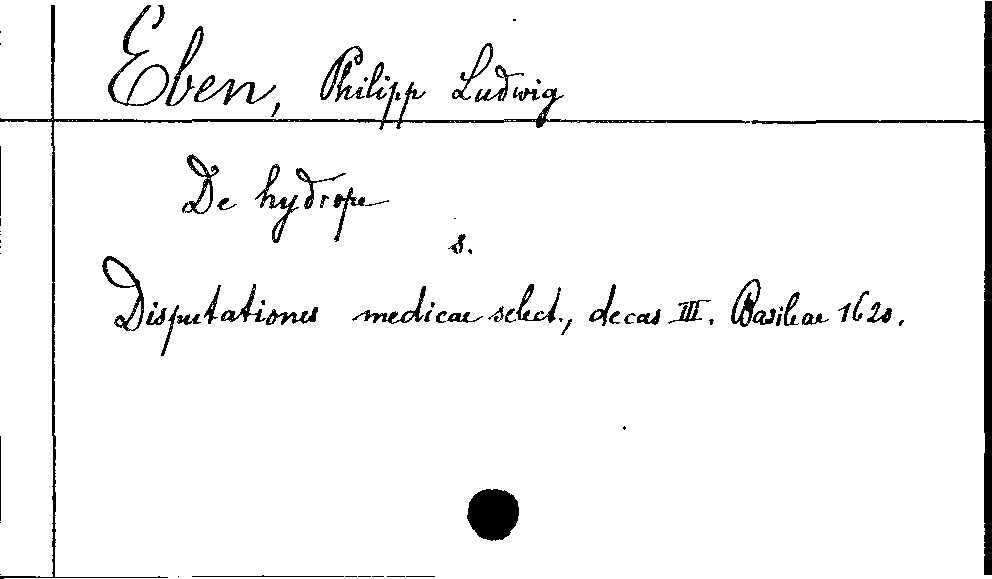 Eben, Philipp Ludwig
De hydrope
s.
Disputationes medicae select., decas III. Basileae 1620.